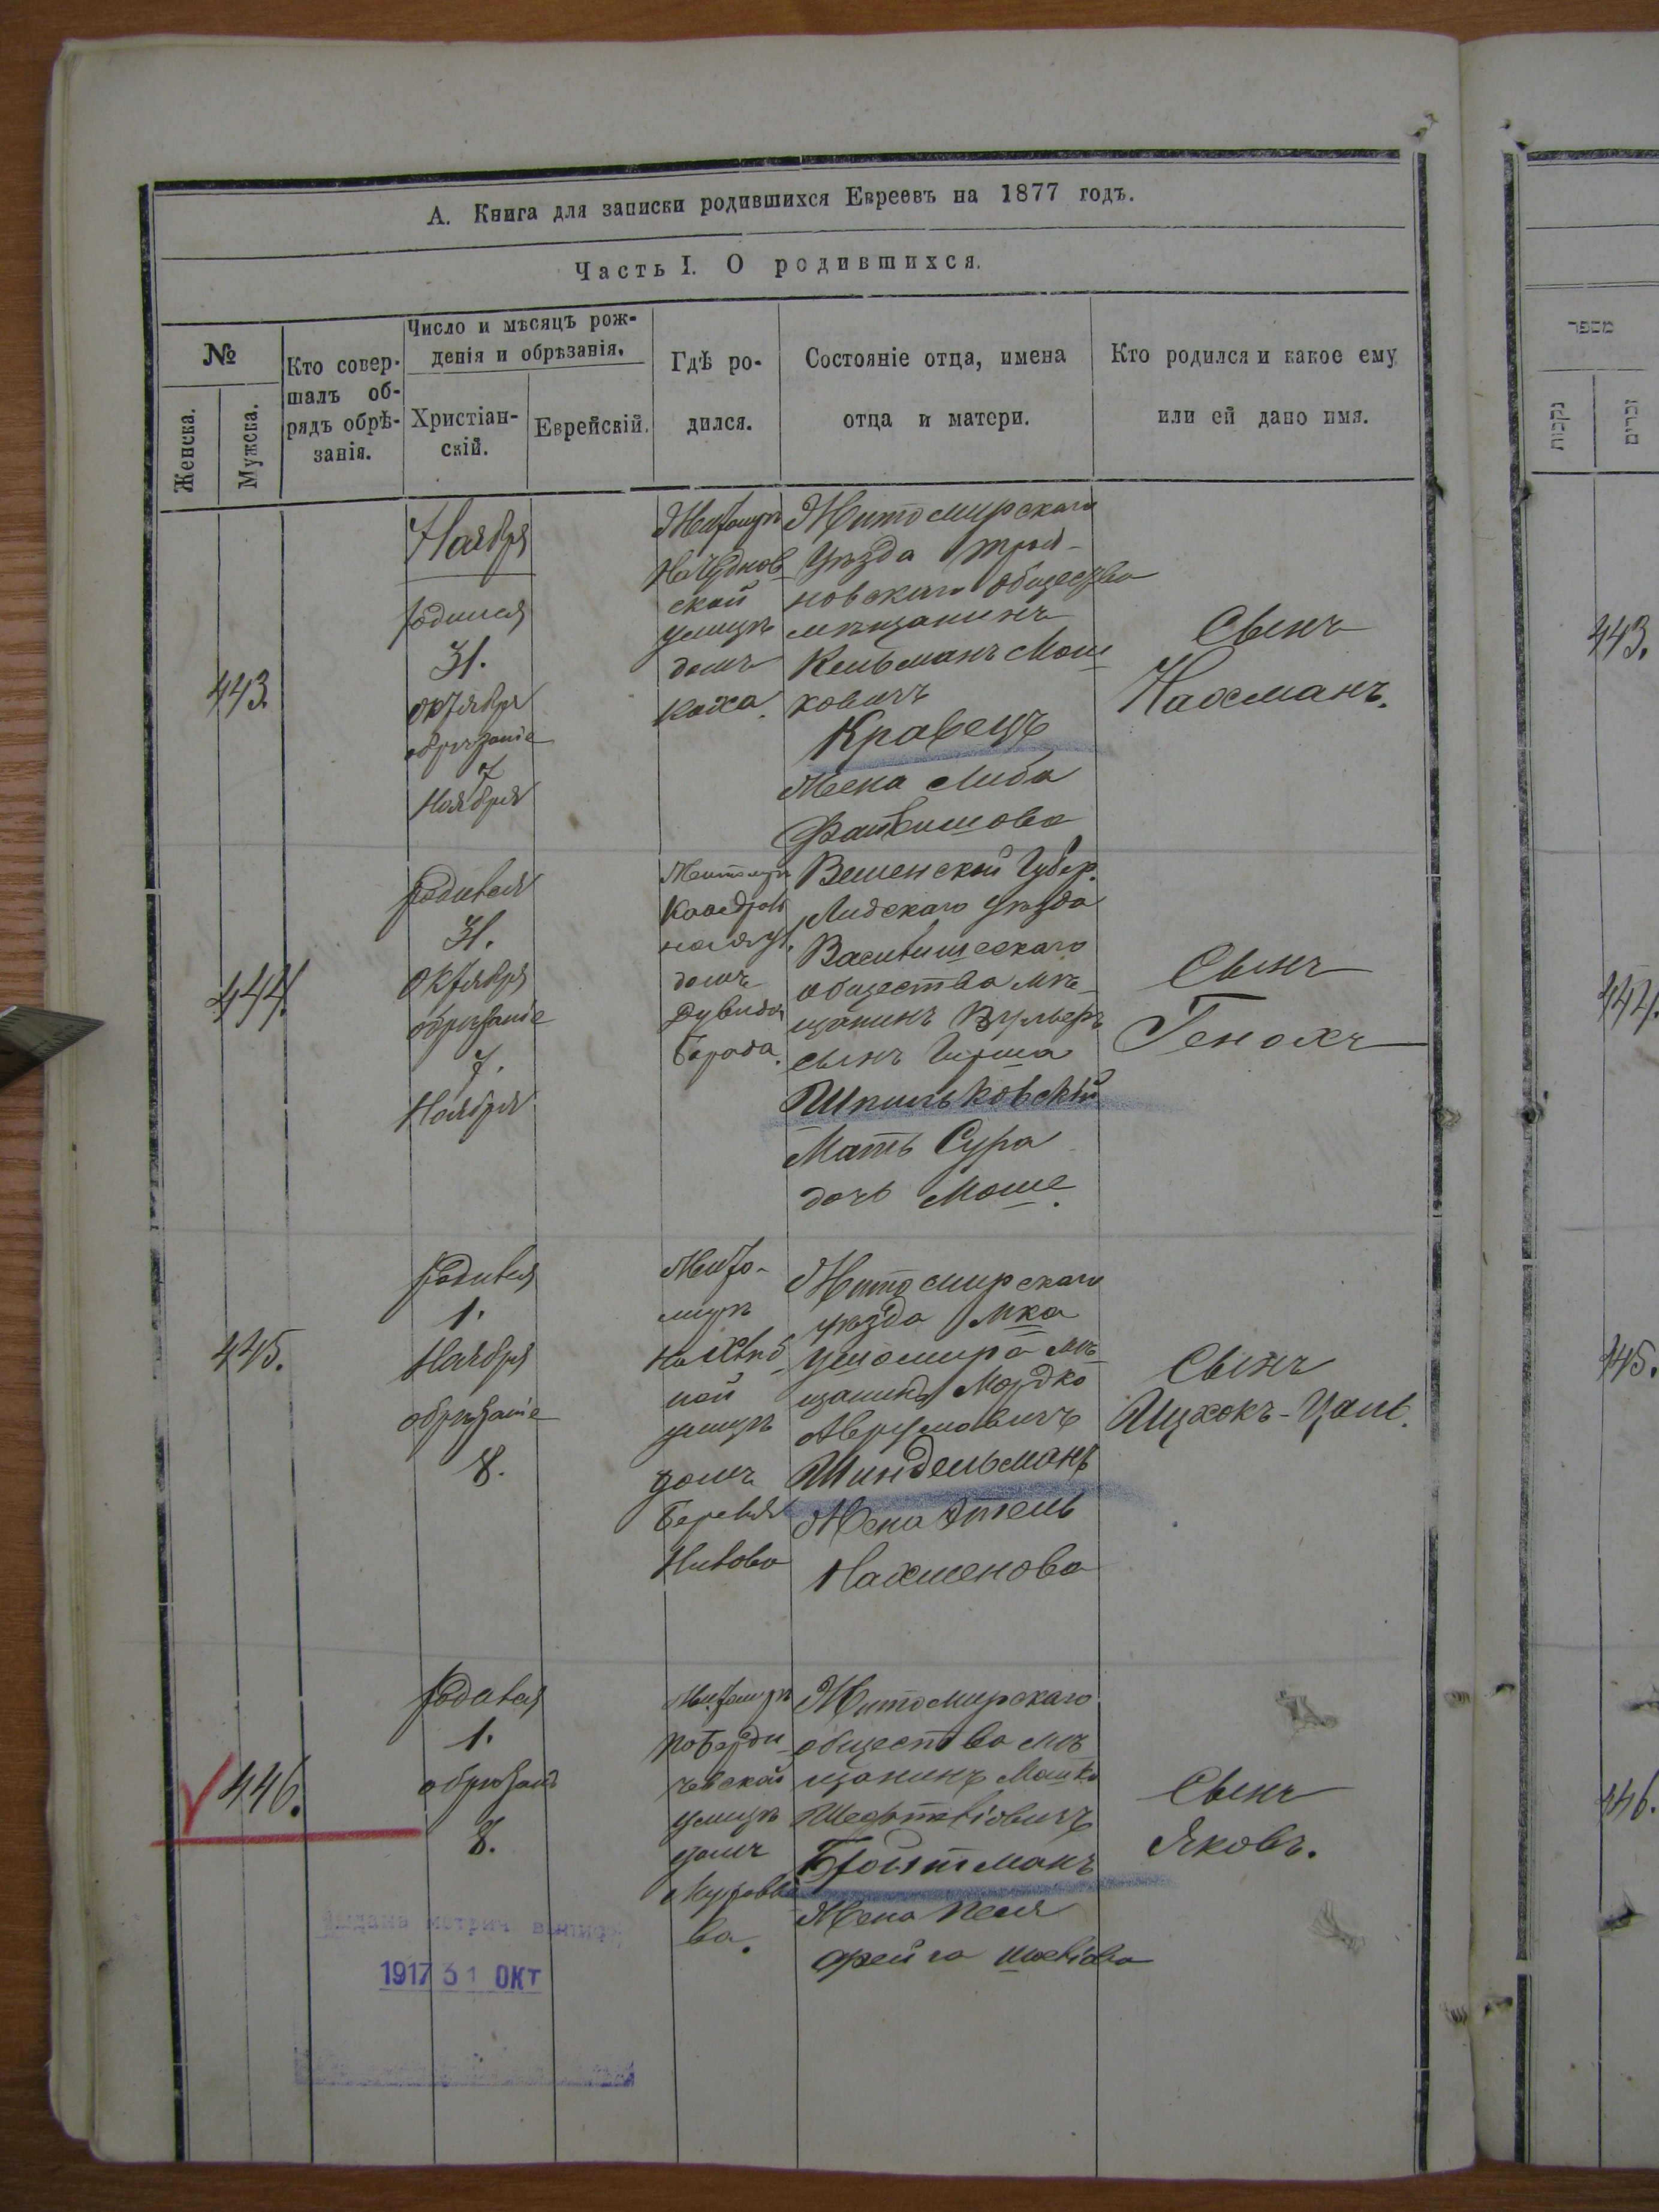 А. Книга для записки родившихся Евреевъ на 1877 годъ.
Часть I. О родившихся.
№
Женска.
Мужска.
Кто совер-
шалъ об-
рядъ обрѣ-
занія.
Число и мѣсяцъ рож-
денія и обрѣзанія.
Христіан-
скій.
Еврейскій.
Гдѣ ро-
дился.
Состояніе отца, имена
отца и матери.
Кто родился и какое ему
или ей дано имя.
443.
Ноября
родился
31.
октября
обрѣзаніе
7
Ноября
Житомирѣ
На Чуднов
ской
улицѣ
домъ
Каха.
Житомирскаго
Уѣзда Троя-
новскаго общества
мѣщанинъ
Кельманъ Мош
ковичъ
Кравецъ
Жена Либа
Файвишова
Сынъ
Нахманъ.
444.
родился
31.
октября
обрѣзаніе
7.
Ноября
Житомирѣ
Кафедраль
ная ул.
домъ
Дувида
Борода.
Виленской Губер.
Лидскаго уѣзда
Василишскаго
общества мѣ
щанинъ
сынъ Гирша
Шпильковскій
Мать Сура
дочь Моше.
Сынъ
Генохъ
445.
родился
1.
Ноября
обрѣзаніе
8.
Жито-
мирѣ
На Хлѣб
ной
улицѣ
домъ
Житомирскаго
уѣзда мка
Ушомира мѣ
щанинъ Мордко
Аврумовичъ
Шиндельманъ
Жена Этель
Нахменова
Сынъ
Ицхокъ-
446.
родился
1.
обрѣзаніе
8.
Житомирѣ
по Берди
чевской
улицѣ
домъ
ва.
Житомирскаго
общества мѣ
щанинъ
Шефтеліовичъ
Бройтманъ
Жена Песя
Фейга
Сынъ
Яковъ.
Выдана метрич выпись
1917 31 ОКТ
מספר
נקבות
זכרים
443.
444.
445.
446.